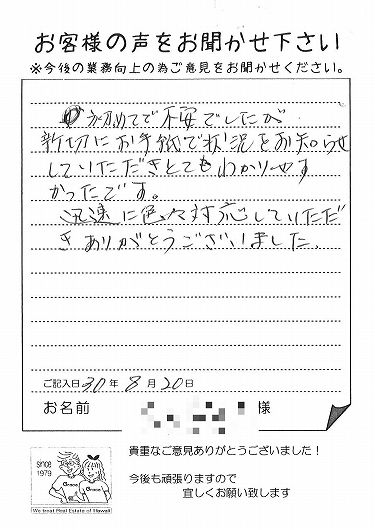 お客様の声をお聞かせ下さい
※今後の業務向上の為ご意見をお聞かせください。
初めてで不安でしたが
新切にお手紙で状況をお知らせ
していただきとてもわかりやす
かったです。
迅速に色々対応していただ
きありがとうございました。
ご記入日 30年 8月20日
お名前 様
since
1979
Grace
Grace
We treat Real Estate of Hawaii
貴重なご意見ありがとうございました！
今後も頑張りますので
宜しくお願い致します